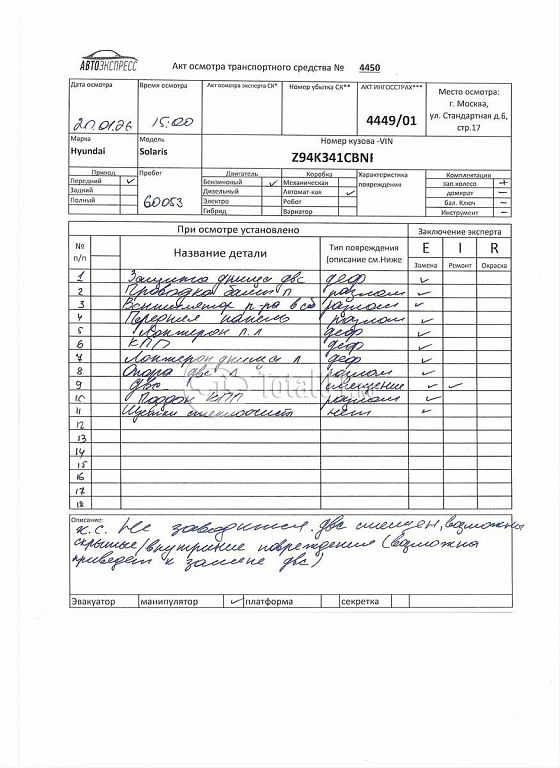 АВТОЭКСПРЕСС
Акт осмотра транспортного средства № 4450
Дата осмотра Время осмотра Акт осмотра эксперта СК* Номер убытка СК** АКТ ИНГОССТРАХ*** Место осмотра:
г. Москва,
20.01.26 15:00 4449/01 ул. Стандартная д.6,
стр.17
Марка Модель Номер кузова -VIN
Hyundai Solaris Z94K341CBN
Привод Пробег Двигатель Коробка Характеристика Комплектации
Передний ✓ Бензиновый ✓ Механическая повреждения зап.колесо +
Задний Дизельный Автомат-кая ✓ домкрат −
Полный 60053 Электро Робот бал. Ключ −
Гибрид Вариатор Инструмент −
При осмотре установлено Заключение эксперта
№ Название детали Тип повреждения E I R
п/п (описание см.Ниже Замена Ремонт Окраска
1 Защита днища двс деф ✓
2 Проводка разлом ✓
3 Вентилятор р-ра в сб разлом ✓
4 Передняя панель разлом ✓
5 Лонжерон п.л деф ✓
6 КПП деф ✓
7 Лонжерон днища л деф ✓
8 Опора двс л разлом ✓
9 двс смещение ✓ ✓
10 Поддон КПП разлом ✓
11 стеклоочист нет ✓
12
13
14
15
16
17
18
Total
Описание:
х.с. Не заводится. двс смещен, возможны
скрытые/внутрение повреждения (возможна
приведет к замене двс)
Эвакуатор манипулятор ✓ платформа секретка